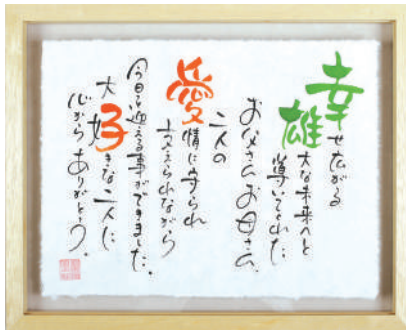 幸せ広がる
雄大な未来へと
導いてくれた
お父さんお母さん
二人の
愛情に守られ
支えられながら
今日を迎える事ができました。
大好きな二人に
心からありがとう。